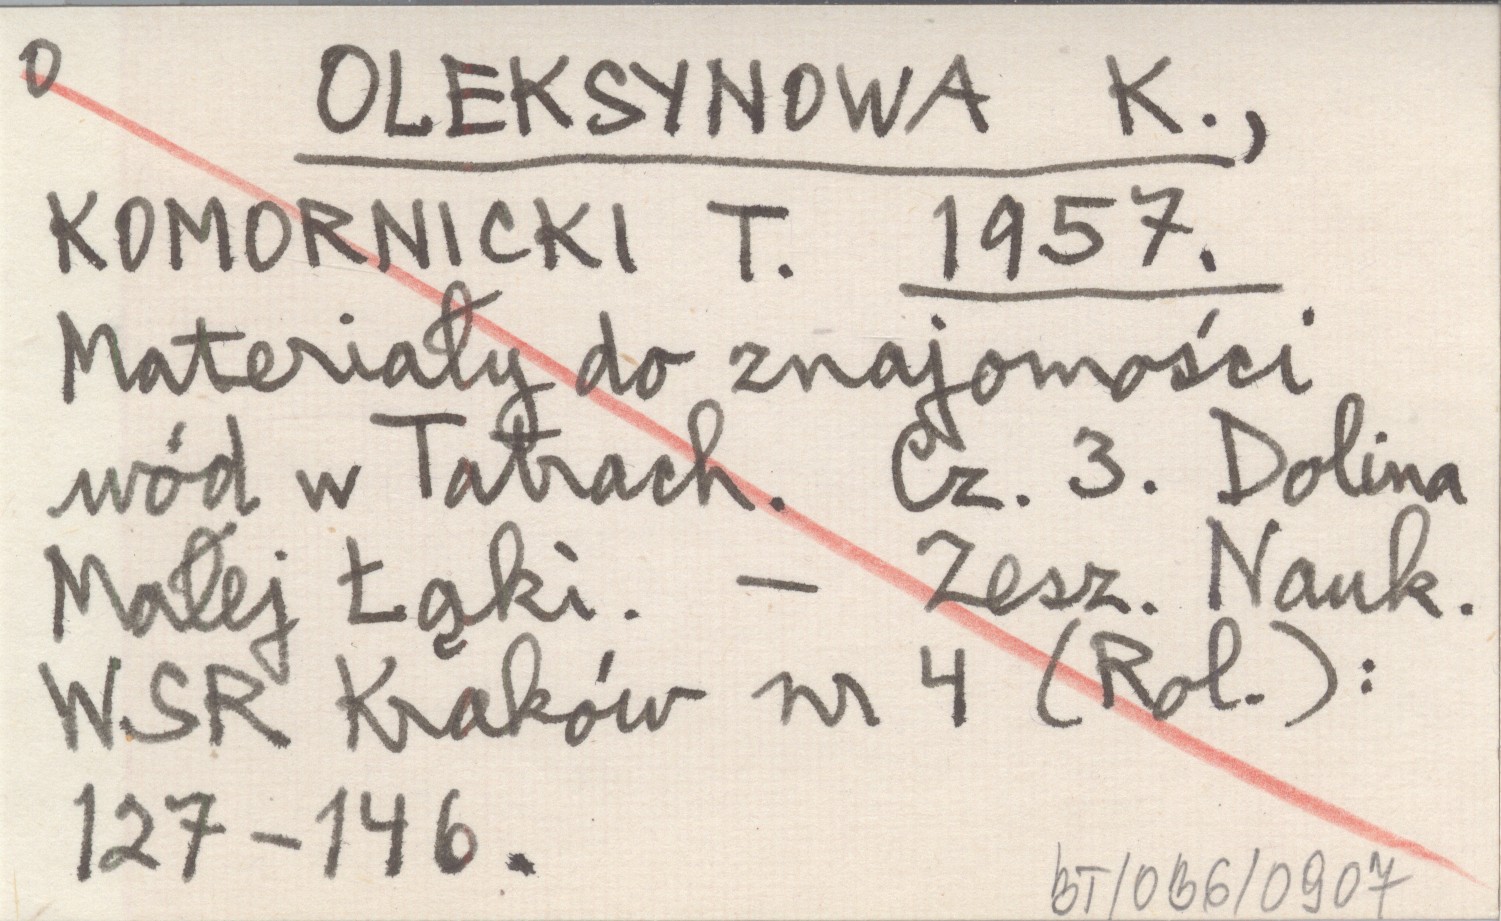 O
OLEKSYNOWA K.,
KOMORNICKI T. 1957.
Materiały do znajomości
wód w Tatrach. Cz. 3. Dolina
Małej Łąki. — Zesz. Nauk.
WSR Kraków nr 4 (Rol.):
127-146.
BT/OB6/0907